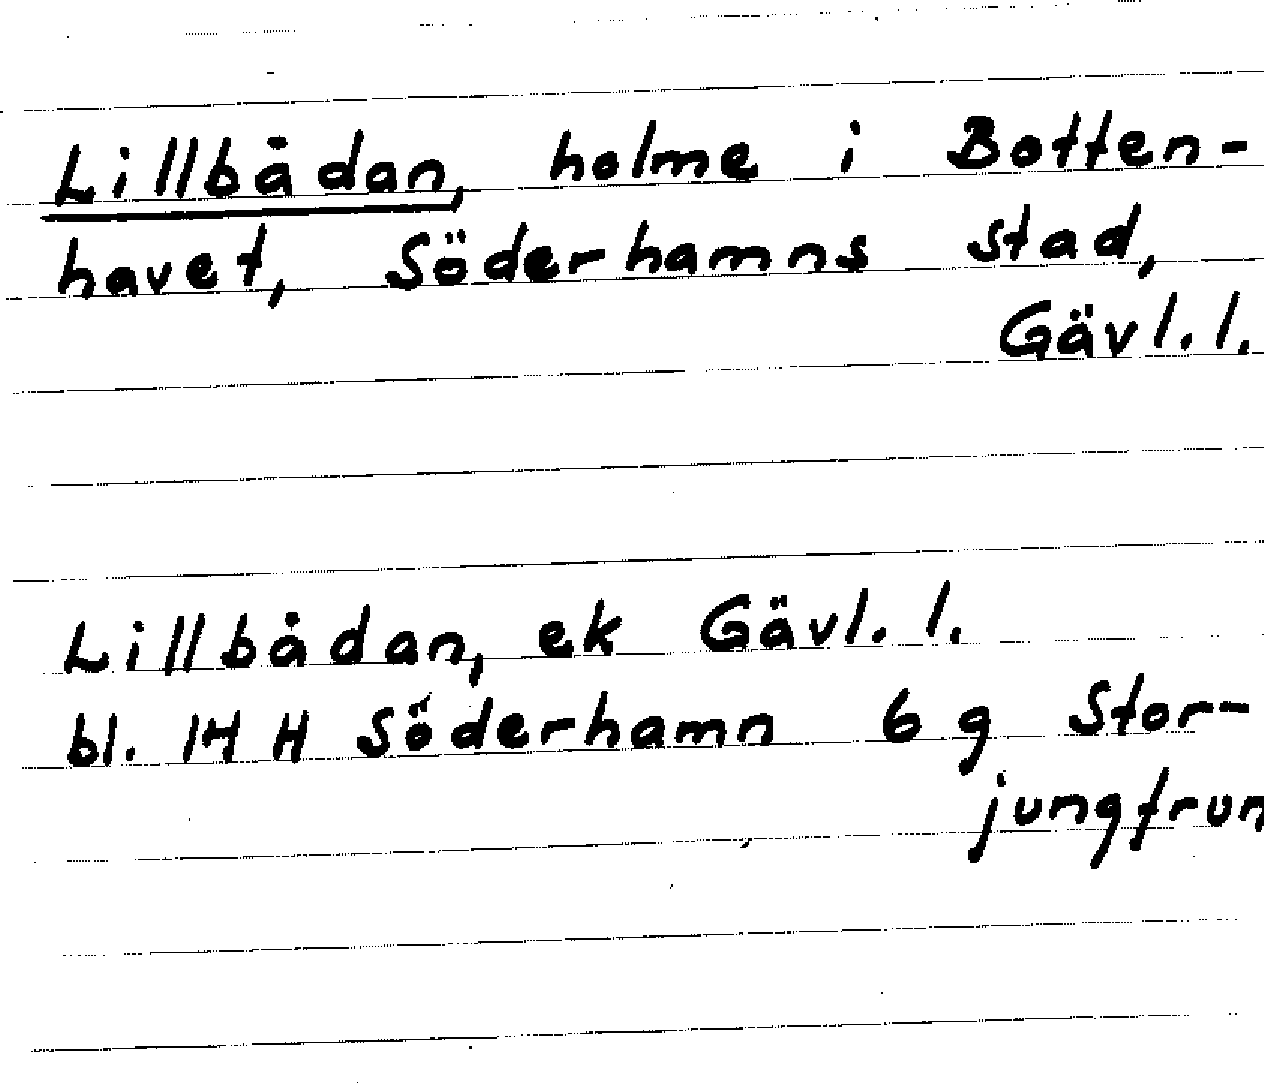 Lillbådan, holme i Botten-
havet, Söderhamns stad,
Gävl. l.
Lillbådan, ek Gävl. l.
bl. 14 H Söderhamn 6 g Stor-
jungfrun